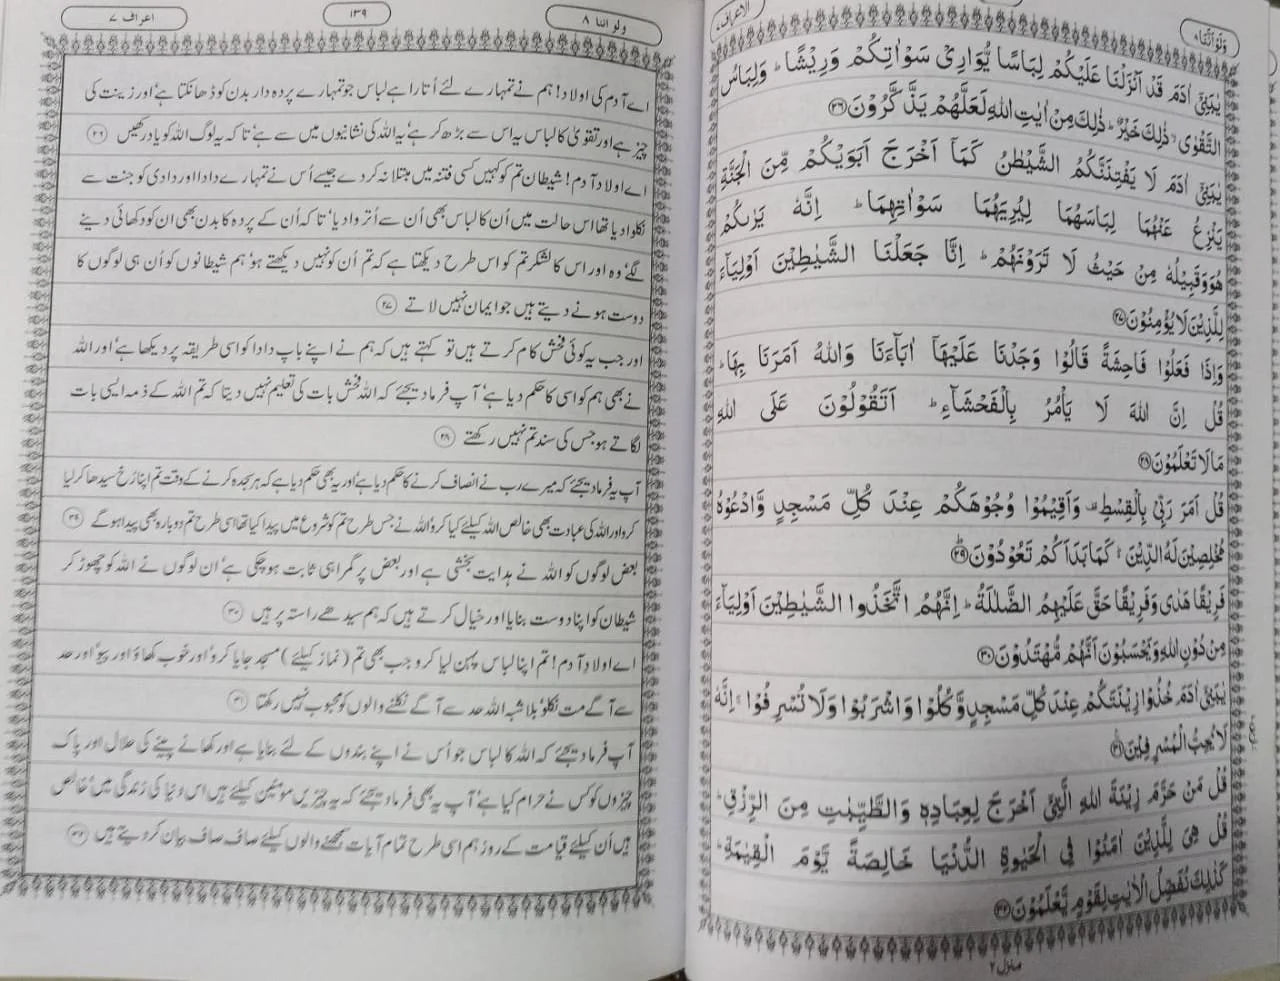 الاعراف ۷
ولو اننا ۸
يٰبَنِىۡۤ اٰدَمَ قَدۡ اَنۡزَلۡنَا عَلَيۡكُمۡ لِبَاسًا يُّوَارِىۡ سَوۡاٰتِكُمۡ وَرِيۡشًا ؕ وَلِبَاسُ
التَّقۡوٰى ۙ ذٰلِكَ خَيۡرٌ ؕ ذٰلِكَ مِنۡ اٰيٰتِ اللّٰهِ لَعَلَّهُمۡ يَذَّكَّرُوۡنَ ﴿۲۶﴾
يٰبَنِىۡۤ اٰدَمَ لَا يَفۡتِنَنَّكُمُ الشَّيۡطٰنُ كَمَاۤ اَخۡرَجَ اَبَوَيۡكُمۡ مِّنَ الۡجَنَّةِ
يَنۡزِعُ عَنۡهُمَا لِبَاسَهُمَا لِيُرِيَهُمَا سَوۡاٰتِهِمَا ؕ اِنَّهٗ يَرٰٮكُمۡ
هُوَ وَقَبِيۡلُهٗ مِنۡ حَيۡثُ لَا تَرَوۡنَهُمۡ ؕ اِنَّا جَعَلۡنَا الشَّيٰطِيۡنَ اَوۡلِيَآءَ
لِلَّذِيۡنَ لَا يُؤۡمِنُوۡنَ ﴿۲۷﴾
وَاِذَا فَعَلُوۡا فَاحِشَةً قَالُوۡا وَجَدۡنَا عَلَيۡهَاۤ اٰبَآءَنَا وَاللّٰهُ اَمَرَنَا بِهَا ؕ
قُلۡ اِنَّ اللّٰهَ لَا يَاۡمُرُ بِالۡفَحۡشَآءِ ؕ اَتَقُوۡلُوۡنَ عَلَى اللّٰهِ
مَا لَا تَعۡلَمُوۡنَ ﴿۲۸﴾
قُلۡ اَمَرَ رَبِّىۡ بِالۡقِسۡطِ ۫ وَاَقِيۡمُوۡا وُجُوۡهَكُمۡ عِنۡدَ كُلِّ مَسۡجِدٍ وَّادۡعُوۡهُ
مُخۡلِصِيۡنَ لَهُ الدِّيۡنَ ؕ كَمَا بَدَاَكُمۡ تَعُوۡدُوۡنَ ﴿۲۹﴾
فَرِيۡقًا هَدٰى وَفَرِيۡقًا حَقَّ عَلَيۡهِمُ الضَّلٰلَةُ ؕ اِنَّهُمُ اتَّخَذُوا الشَّيٰطِيۡنَ اَوۡلِيَآءَ
مِنۡ دُوۡنِ اللّٰهِ وَيَحۡسَبُوۡنَ اَنَّهُمۡ مُّهۡتَدُوۡنَ ﴿۳۰﴾
يٰبَنِىۡۤ اٰدَمَ خُذُوۡا زِيۡنَتَكُمۡ عِنۡدَ كُلِّ مَسۡجِدٍ وَّكُلُوۡا وَاشۡرَبُوۡا وَلَا تُسۡرِفُوۡا ۚ اِنَّهٗ
لَا يُحِبُّ الۡمُسۡرِفِيۡنَ ﴿۳۱﴾
قُلۡ مَنۡ حَرَّمَ زِيۡنَةَ اللّٰهِ الَّتِىۡۤ اَخۡرَجَ لِعِبَادِهٖ وَالطَّيِّبٰتِ مِنَ الرِّزۡقِ ؕ
قُلۡ هِىَ لِلَّذِيۡنَ اٰمَنُوۡا فِى الۡحَيٰوةِ الدُّنۡيَا خَالِصَةً يَّوۡمَ الۡقِيٰمَةِ ؕ
كَذٰلِكَ نُفَصِّلُ الۡاٰيٰتِ لِقَوۡمٍ يَّعۡلَمُوۡنَ ﴿۳۲﴾
منزل ۲
ولو اننا ۸
۱۳۹
اعراف ۷
اے آدم کی اولاد! ہم نے تمہارے لئے اُتارا ہے لباس جو تمہارے پردہ دار بدن کو ڈھانکتا ہے‘ اور زینت کی
چیز ہے اور تقویٰ کا لباس یہ اس سے بڑھ کر ہے‘ یہ اللہ کی نشانیوں میں سے ہے‘ تاکہ یہ لوگ اللہ کو یاد رکھیں ۲۶
اے اولاد آدم! شیطان تم کو کہیں کسی فتنہ میں مبتلا نہ کر دے جیسے اُس نے تمہارے دادا اور دادی کو جنت سے
نکلوا دیا تھا اس حالت میں اُن کا لباس بھی اُن سے اُتروا دیا‘ تاکہ اُن کے پردہ کا بدن بھی ان کو دکھائی دینے
لگے‘ وہ اور اس کا لشکر تم کو اس طرح دیکھتا ہے کہ تم اُن کو نہیں دیکھتے ہو‘ ہم شیطانوں کو اُن ہی لوگوں کا
دوست ہونے دیتے ہیں جو ایمان نہیں لاتے ۲۷
اور جب یہ کوئی فحش کام کرتے ہیں تو کہتے ہیں کہ ہم نے اپنے باپ دادا کو اسی طریقہ پر دیکھا ہے‘ اور اللہ
نے بھی ہم کو اسی کا حکم دیا ہے‘ آپ فرما دیجئے کہ اللہ فحش بات کی تعلیم نہیں دیتا کہ تم اللہ کے ذمہ ایسی بات
لگاتے ہو جس کی سند تم نہیں رکھتے ۲۸
آپ یہ فرما دیجئے کہ میرے رب نے انصاف کرنے کا حکم دیا ہے‘ اور یہ بھی حکم دیا ہے کہ ہر سجدہ کرنے کے وقت تم اپنا رُخ سیدھا کر لیا
کرو اور اللہ کی عبادت بھی خالص اللہ کیلئے کیا کرو‘ اللہ نے جس طرح تم کو شروع میں پیدا کیا تھا اسی طرح تم دوبارہ بھی پیدا ہوگے ۲۹
بعض لوگوں کو اللہ نے ہدایت بخشی ہے اور بعض پر گمراہی ثابت ہو چکی ہے‘ ان لوگوں نے اللہ کو چھوڑ کر
شیطان کو اپنا دوست بنایا اور خیال کرتے ہیں کہ ہم سیدھے راستہ پر ہیں ۳۰
اے اولاد آدم! تم اپنا لباس پہن لیا کرو جب بھی تم (نماز کیلئے) مسجد جایا کرو‘ اور خوب کھاؤ اور پیو‘ اور حد
سے آگے مت نکلو‘ بلاشبہ اللہ حد سے آگے نکلنے والوں کو محبوب نہیں رکھتا ۳۱
آپ فرما دیجئے کہ اللہ کا لباس جو اُس نے اپنے بندوں کے لئے بنایا ہے اور کھانے پینے کی حلال اور پاک
چیزوں کو کس نے حرام کیا ہے‘ آپ یہ بھی فرما دیجئے کہ یہ چیزیں مومنین کیلئے ہیں اس دنیا کی زندگی میں‘ خالص
ہیں اُن کیلئے قیامت کے روز‘ ہم اسی طرح تمام آیات سمجھنے والوں کیلئے صاف صاف بیان کر دیتے ہیں ۳۲